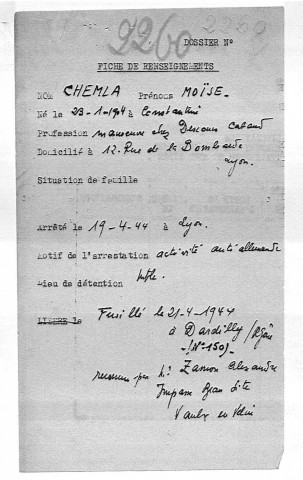 2260
DOSSIER N°
FICHE DE RENSEIGNEMENTS
NOM CHEMLA Prénoms MOÏSE.
Né le 23-1-1904 à Constantine
Profession manœuvre chez Descours Cabaud
Domicilié à 12. Rue de la Bombarde
Lyon.
Situation de famille
Arrêté le 19-4-44 à Lyon.
Motif de l'arrestation activité anti allemande
Lieu de détention
LIBERE le Fusillé le 21-4-1944
à Dardilly / Rhône
(N° 150).
reconnu par Mr Zannon Alexandre
Impasse
Vaulx en Velin